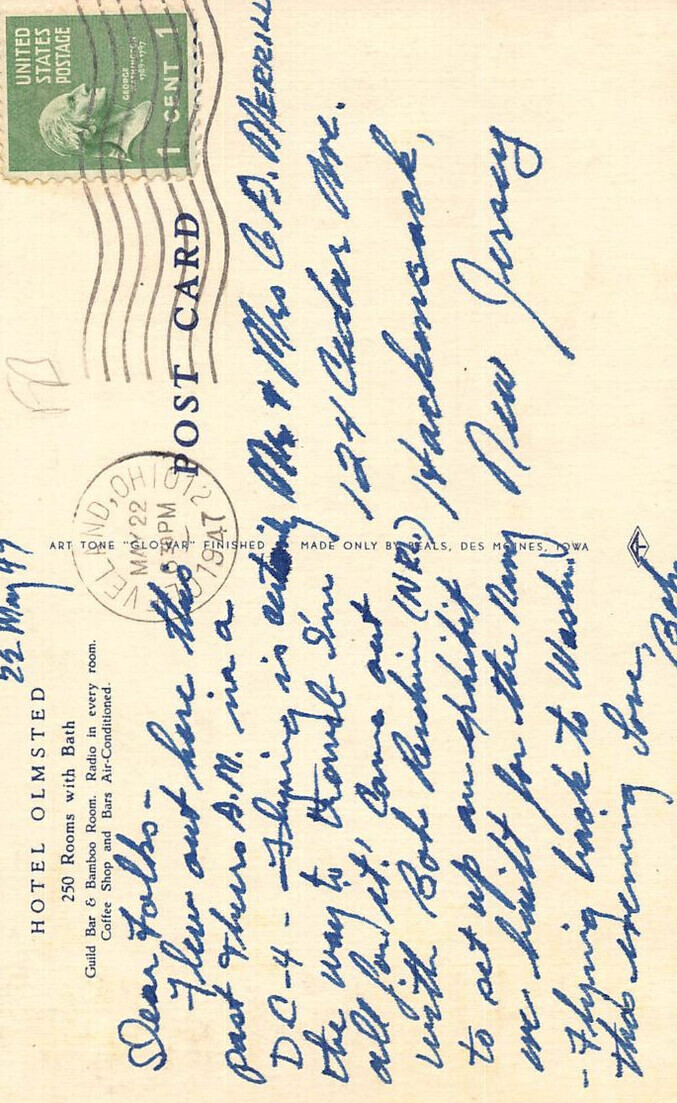 HOTEL OLMSTED
250 Rooms with Bath
Guild Bar & Bamboo Room. Radio in every room.
Coffee Shop and Bars Air-Conditioned.
22 May 47
Dear Folks -
Flew out here this
past Thurs A.M. in a
DC-4 - Flying is certainly
the way to travel I'm
all for it! Came out
with Bob (NRL)
to set up an exhibit
we built for the Navy
- Flying back to Wash.
this evening Love,
Bob
ART TONE "GLO-VAR" FINISHED
MADE ONLY BY BEALS, DES MOINES, IOWA
POST CARD
CLEVELAND, OHIO 12
MAY 22
8 30 PM
1947
UNITED
STATES
POSTAGE
GEORGE
WASHINGTON
1789-1797
1 CENT 1
Mr & Mrs C. D. MERRILL
124 Cedar Ave.
Hackensack,
New Jersey